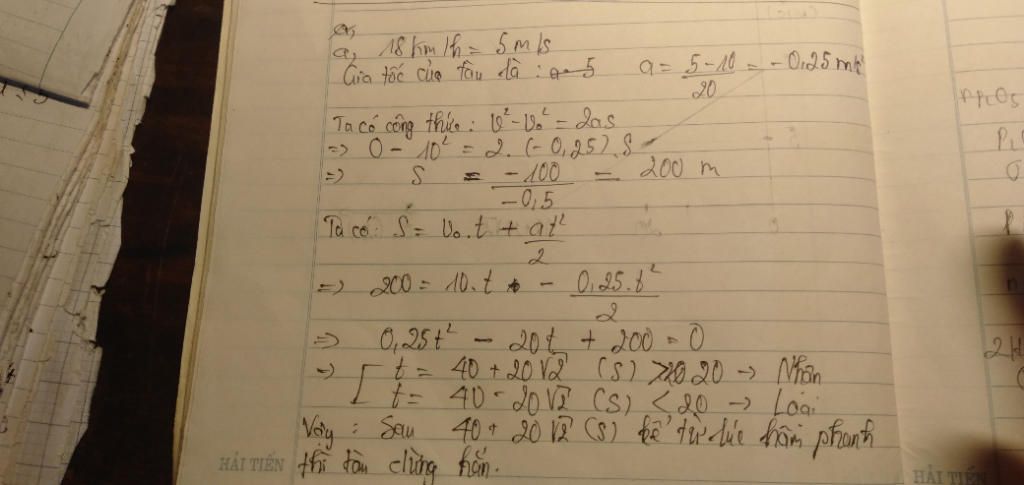 a,
a, 18km/h = 5 m/s
Gia tốc của tàu là : a = 5 a = \frac{5-10}{20} = - 0,25 m/s²
Ta có công thức : v² - v₀² = 2as
=> 0 - 10² = 2. (- 0,25) . S
=> S = \frac{-100}{-0,5} = 200 m
Ta có: S = v₀.t + \frac{at²}{2}
=> 200 = 10.t - \frac{0,25.t²}{2}
=> 0,25t² - 20t + 200 = 0
=> [ t = 40 + 20√2 (s) > 20 → Nhân
t = 40 - 20√2 (s) < 20 → Loại
Vậy : Sau 40 + 20√2 (s) kể từ lúc hãm phanh
thì tàu dừng hẳn.
HẢI TIẾN
HẢI TIẾN
P₂O₅
2H